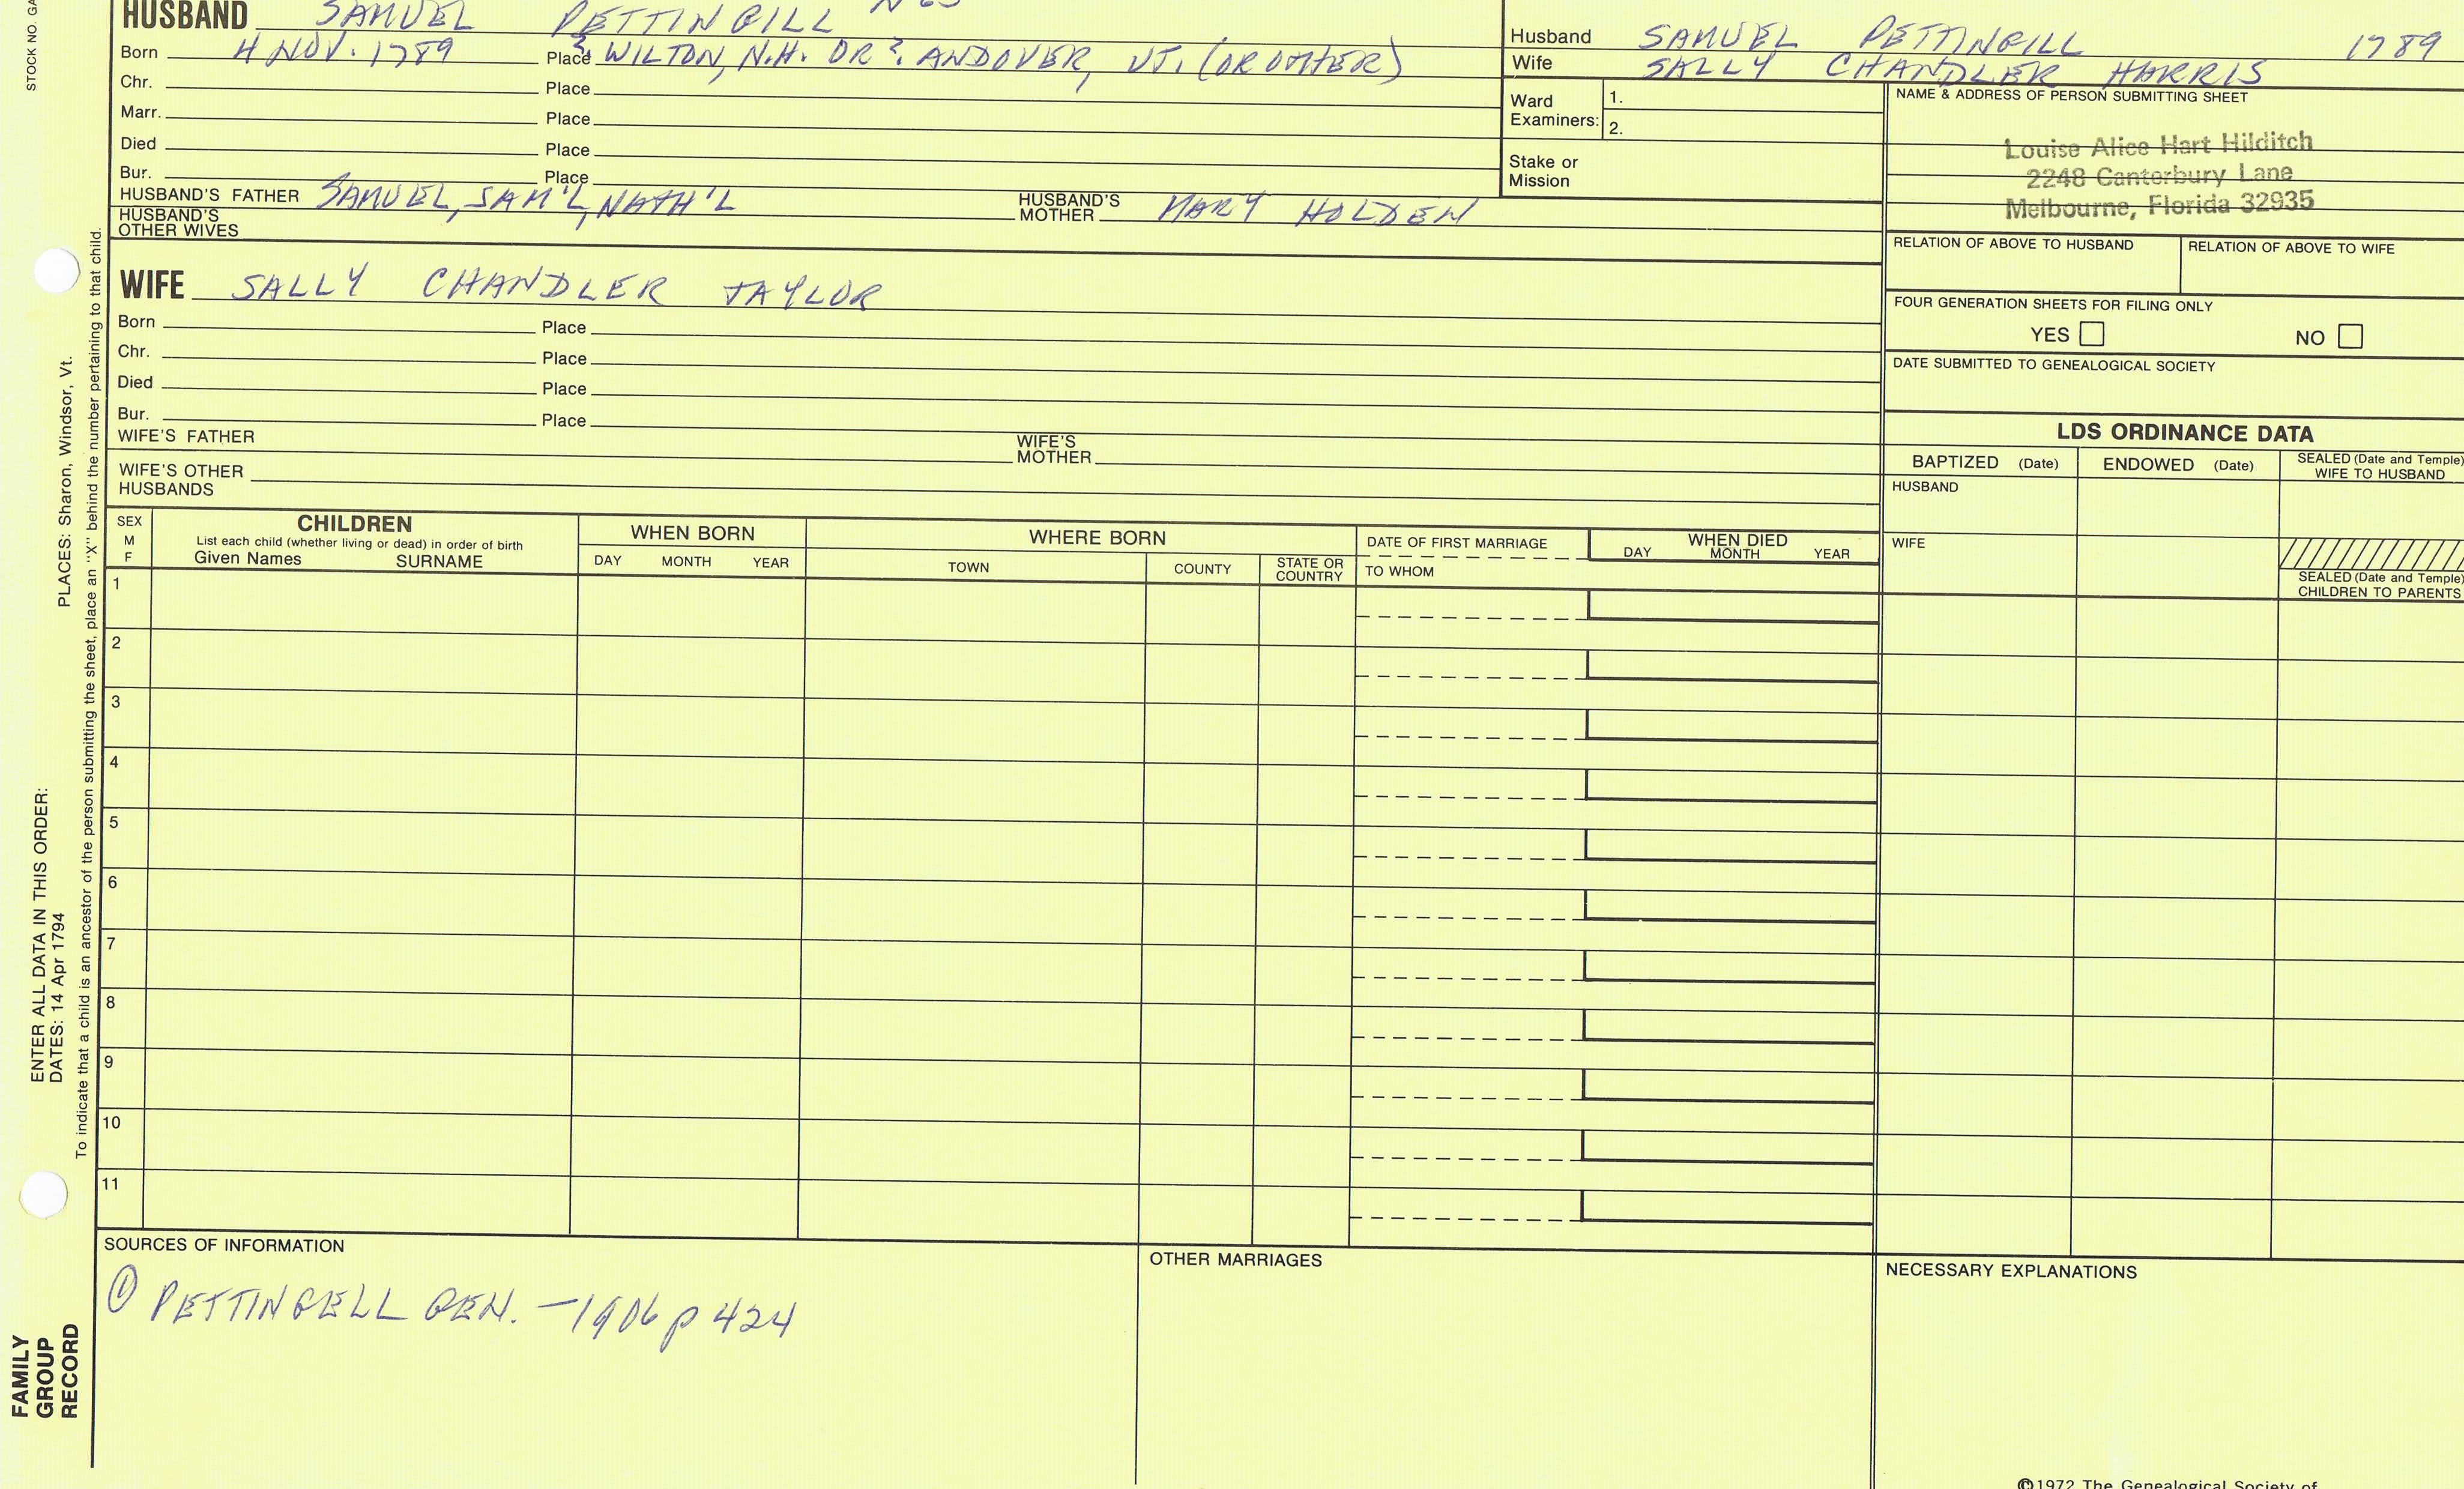 STOCK NO. GA
HUSBAND SAMUEL PETTINGILL N 63
Born 4 NOV. 1789 Place ? WILTON, N.H. OR ? ANDOVER, VT. (OR OTHER)
Chr. Place
Marr. Place
Died Place
Bur. Place
HUSBAND'S FATHER SAMUEL, SAM'L, NATH'L HUSBAND'S MOTHER MARY HOLDEN
HUSBAND'S OTHER WIVES
Husband SAMUEL PETTINGILL 1789
Wife SALLY CHANDLER HARRIS
Ward Examiners: 1.
2.
Stake or Mission
NAME & ADDRESS OF PERSON SUBMITTING SHEET
Louise Alice Hart Hilditch
2248 Canterbury Lane
Melbourne, Florida 32935
RELATION OF ABOVE TO HUSBAND RELATION OF ABOVE TO WIFE
FOUR GENERATION SHEETS FOR FILING ONLY
YES NO
DATE SUBMITTED TO GENEALOGICAL SOCIETY
WIFE SALLY CHANDLER TAYLOR
Born Place
Chr. Place
Died Place
Bur. Place
WIFE'S FATHER WIFE'S MOTHER
WIFE'S OTHER HUSBANDS
LDS ORDINANCE DATA
BAPTIZED (Date) ENDOWED (Date) SEALED (Date and Temple) WIFE TO HUSBAND
HUSBAND
WIFE
SEALED (Date and Temple) CHILDREN TO PARENTS
SEX M F
CHILDREN
List each child (whether living or dead) in order of birth
Given Names SURNAME
WHEN BORN
DAY MONTH YEAR
WHERE BORN
TOWN COUNTY STATE OR COUNTRY
DATE OF FIRST MARRIAGE
TO WHOM
WHEN DIED
DAY MONTH YEAR
1
2
3
4
5
6
7
8
9
10
11
SOURCES OF INFORMATION
① PETTINGELL GEN. - 1906 p 424
OTHER MARRIAGES
NECESSARY EXPLANATIONS
©1972 The Genealogical Society of
FAMILY GROUP RECORD
ENTER ALL DATA IN THIS ORDER:
DATES: 14 Apr 1794 PLACES: Sharon, Windsor, Vt.
To indicate that a child is an ancestor of the person submitting the sheet, place an "X" behind the number pertaining to that child.